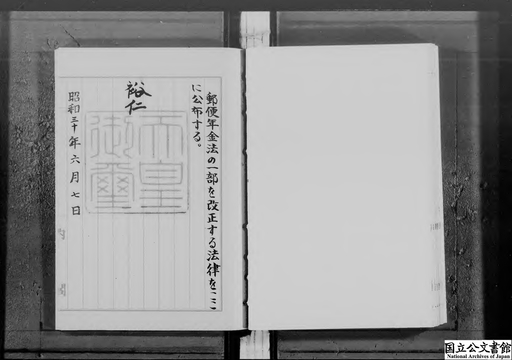 郵便年金法の一部を改正する法律をここ
に公布する。
裕仁
天皇
御璽
昭和三十年六月七日
国立公文書館
National Archives of Japan